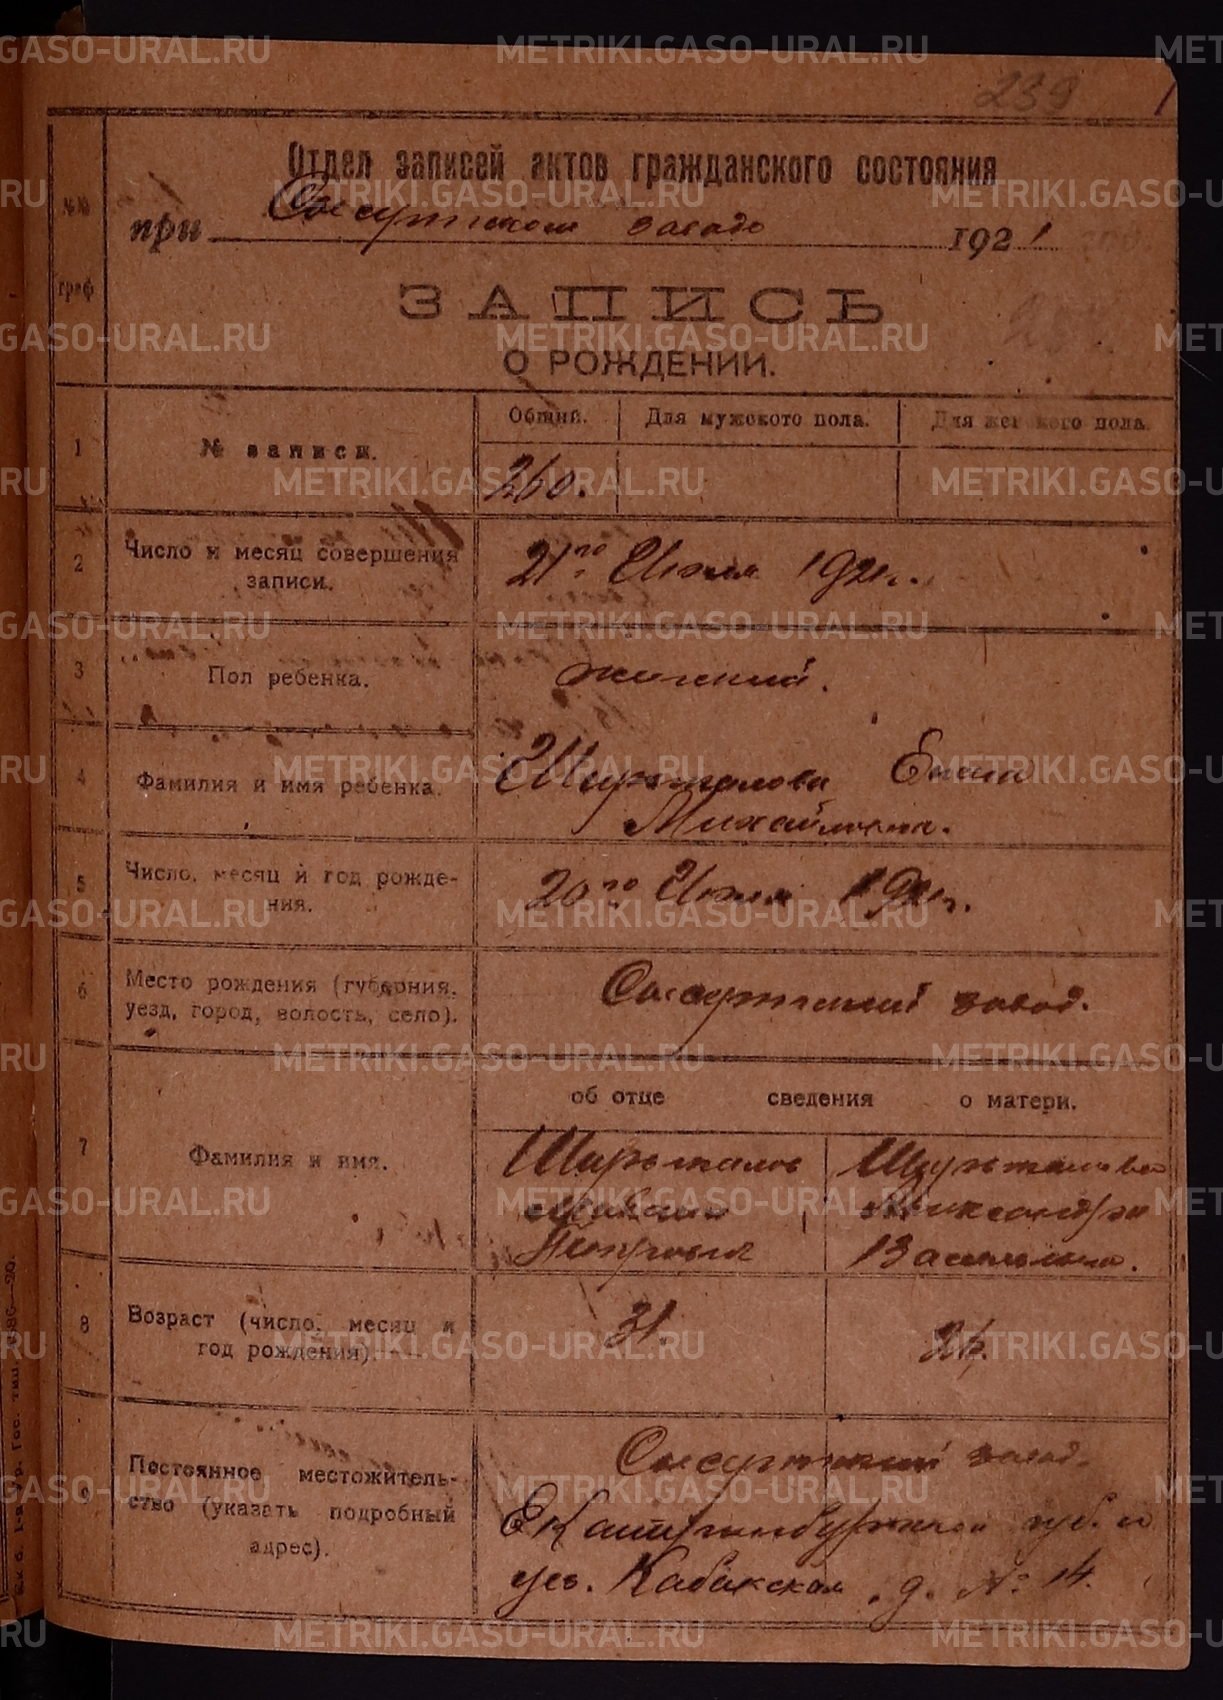 239
Отдел записей актов гражданского состояния
при Сысертском заводе 1921
№№ граф
ЗАПИСЬ
О РОЖДЕНИИ.
1 № записи. Общий. Для мужского пола. Для женского пола.
260.
2 Число и месяц совершения записи. 21го Июля 1921г.
3 Пол ребенка. женский.
4 Фамилия и имя ребенка. Ширыкалова Елена
Михайловна.
5 Число, месяц и год рожде-
ния. 20го Июля 1921г.
6 Место рождения (губерния,
уезд, город, волость, село). Сысертский завод.
об отце сведения о матери.
7 Фамилия и имя. Ширыкалов Ширыкалова
Александра
Петрович Васильевна.
8 Возраст (число, месяц и
год рождения). 31. 26.
9 Постоянное местожитель-
ство (указать подробный
адрес).
Сысертский завод.
Екатеринбургской губ. и
уез. Кабакская д. № 14.
METRIKI.GASO-URAL.RU